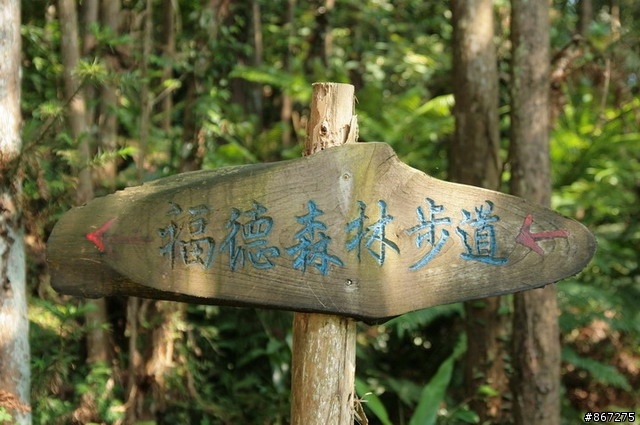 福德森林步道
#867275